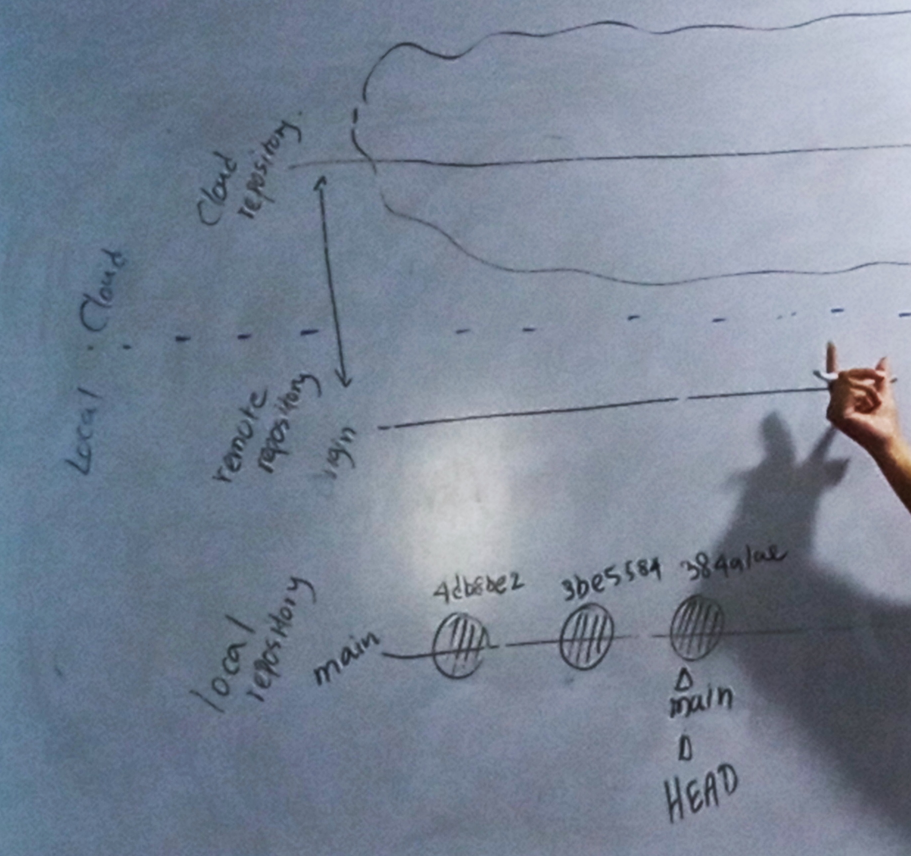 Cloud
repository.
Cloud
Local
remote
repository
rigin
local
repository
main
4db8be2 3be5584 384a1ae
main
HEAD